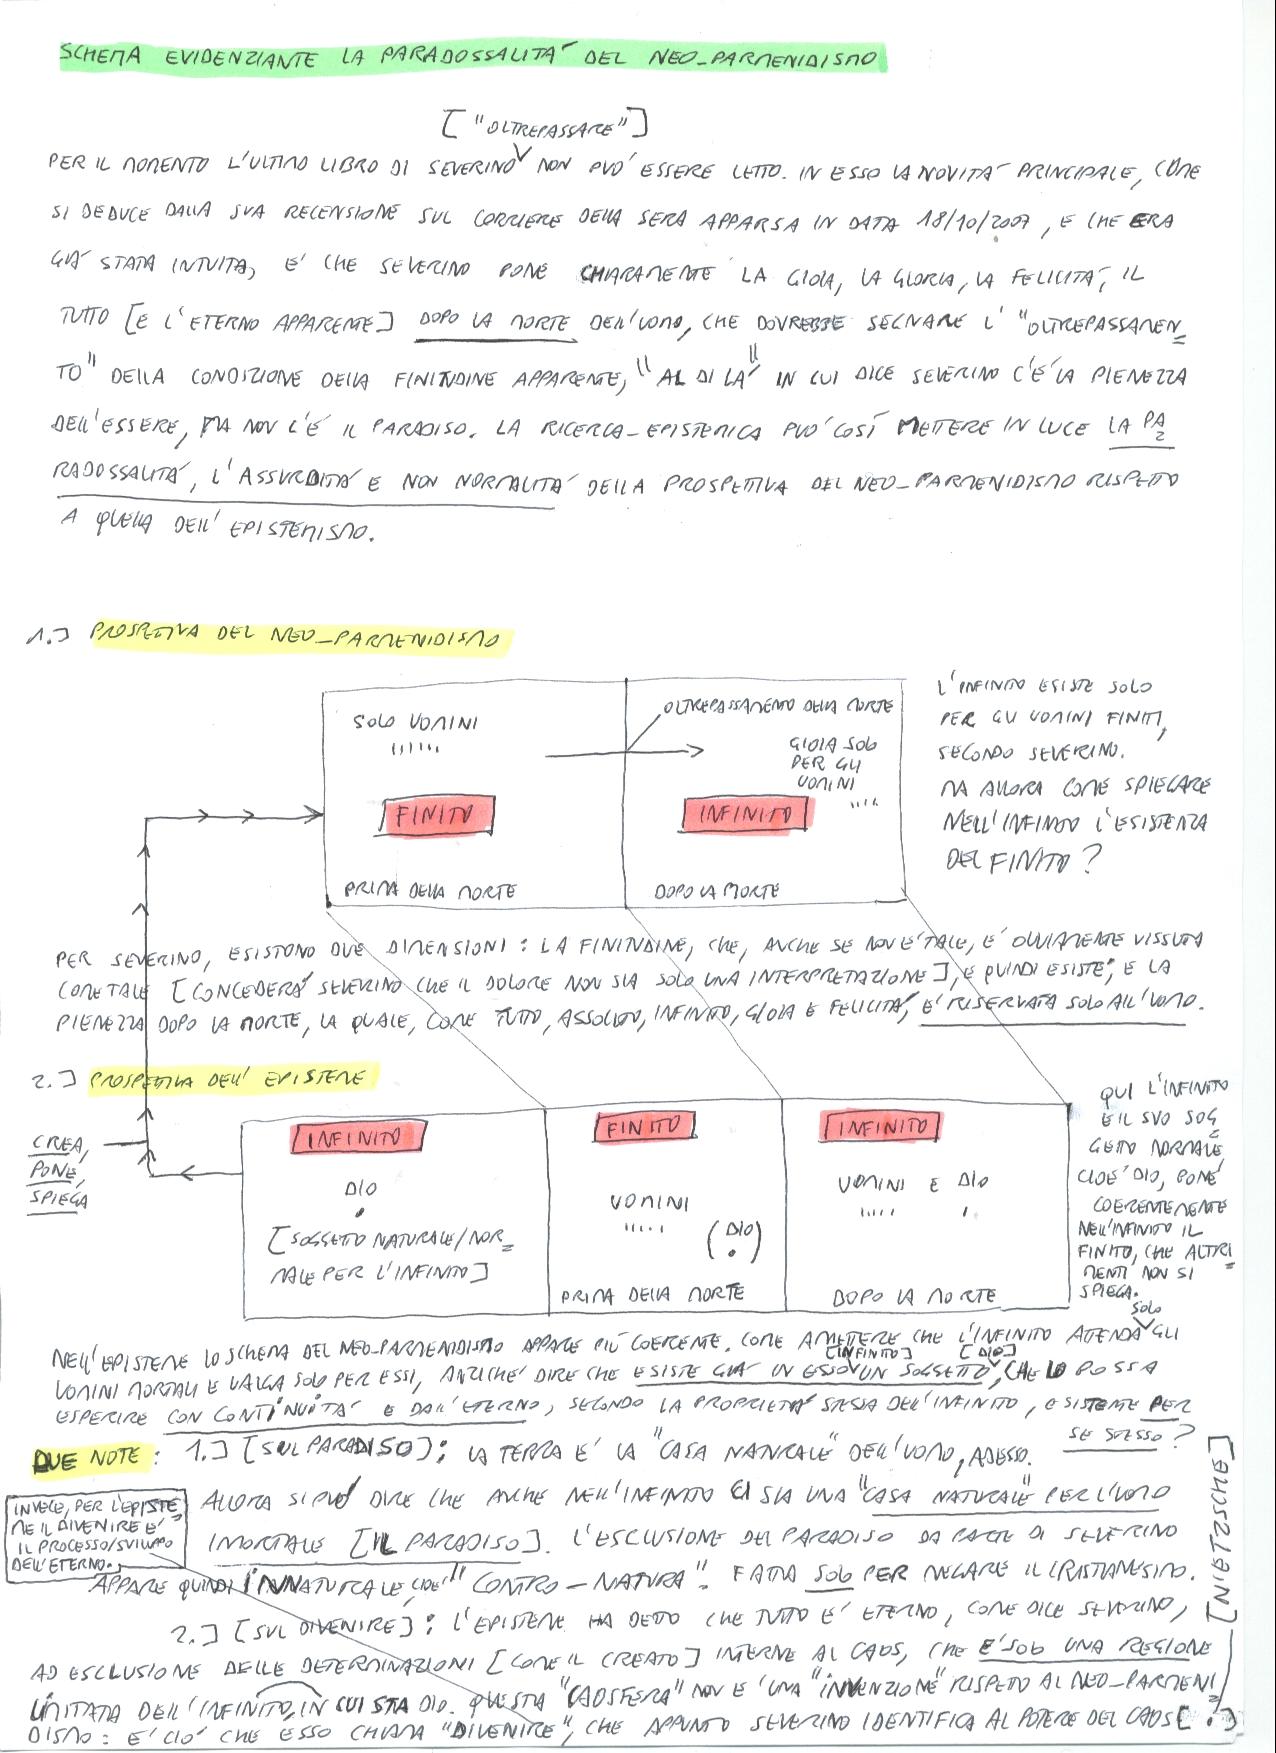 SCHEMA EVIDENZIANTE LA PARADOSSALITA' DEL NEO-PARMENIDISMO
["OLTREPASSARE"]
PER IL MOMENTO L'ULTIMO LIBRO DI SEVERINO NON PUO' ESSERE LETTO. IN ESSO LA NOVITA' PRINCIPALE, COME
SI DEDUCE DALLA SUA RECENSIONE SUL CORRIERE DELLA SERA APPARSA IN DATA 18/10/2007, E CHE ERA
GIA' STATA INTUITA, E' CHE SEVERINO PONE CHIARAMENTE LA GIOIA, LA GLORIA, LA FELICITA', IL
TUTTO [E L'ETERNO APPARENTE] DOPO LA MORTE DELL'UOMO, CHE DOVREBBE SEGNARE L'"OLTREPASSAMEN=
TO" DELLA CONDIZIONE DELLA FINITUDINE APPARENTE, "AL DI LA'" IN CUI DICE SEVERINO C'E' LA PIENEZZA
DELL'ESSERE, MA NON C'E' IL PARADISO. LA RICERCA-EPISTEMICA PUO' COSI' METTERE IN LUCE LA PA=
RADOSSALITA', L'ASSURDITA' E NON NORMALITA' DELLA PROSPETTIVA DEL NEO-PARMENIDISMO RISPETTO
A QUELLA DELL'EPISTEMISMO.
1.] PROSPETTIVA DEL NEO-PARMENIDISMO
SOLO UOMINI
OLTREPASSAMENTO DELLA MORTE
GIOIA SOLO
PER GLI
UOMINI
FINITO
INFINITO
PRIMA DELLA MORTE
DOPO LA MORTE
L'INFINITO ESISTE SOLO
PER GLI UOMINI FINITI,
SECONDO SEVERINO.
MA ALLORA COME SPIEGARE
NELL'INFINITO L'ESISTENZA
DEL FINITO?
PER SEVERINO, ESISTONO DUE DIMENSIONI: LA FINITUDINE, CHE, ANCHE SE NON E' TALE, E' OVVIAMENTE VISSUTA
COME TALE [CONCEDERA' SEVERINO CHE IL DOLORE NON SIA SOLO UNA INTERPRETAZIONE], E QUINDI ESISTE, E LA
PIENEZZA DOPO LA MORTE, LA QUALE, COME TUTTO, ASSOLUTO, INFINITO, GIOIA E FELICITA', E' RISERVATA SOLO ALL'UOMO.
2.] PROSPETTIVA DELL'EPISTEME
CREA,
PONE,
SPIEGA
INFINITO
DIO
[SOGGETTO NATURALE/NOR=
MALE PER L'INFINITO]
FINITO
UOMINI
(DIO)
PRIMA DELLA MORTE
INFINITO
UOMINI E DIO
DOPO LA MORTE
QUI L'INFINITO
E IL SUO SOG=
GETTO NORMALE
CIOE' DIO, PONE
COERENTEMENTE
NELL'INFINITO IL
FINITO, CHE ALTRI=
MENTI NON SI
SPIEGA.
SOLO
NELL'EPISTEME LO SCHEMA DEL NEO-PARMENIDISMO APPARE PIU' COERENTE. COME AMETTERE CHE L'INFINITO ATTENDA GLI
[INFINITO] [DIO]
UOMINI MORTALI E VALGA SOLO PER ESSI, ANZICHE' DIRE CHE ESISTE GIA' IN ESSO UN SOGGETTO, CHE LO POSSA
ESPERIRE CON CONTINUITA' E DALL'ETERNO, SECONDO LA PROPRIETA' STESSA DELL'INFINITO, ESISTENTE PER
SE STESSO?
DUE NOTE: 1.] [SUL PARADISO]: LA TERRA E' LA "CASA NATURALE" DELL'UOMO, ADESSO.
ALLORA SI PUO' DIRE CHE ANCHE NELL'INFINITO CI SIA UNA "CASA NATURALE" PER L'UOMO
IMORTALE [IL PARADISO]. L'ESCLUSIONE DEL PARADISO DA PARTE DI SEVERINO
APPARE QUINDI INNATURALE, CIOE' "CONTRO-NATURA". FATTA SOLO PER NEGARE IL CRISTIANESIMO.
INVECE, PER L'EPISTE=
ME IL DIVENIRE E'
IL PROCESSO/SVILUPPO
DELL'ETERNO.
2.] [SUL DIVENIRE]: L'EPISTEME HA DETTO CHE TUTTO E' ETERNO, COME DICE SEVERINO,
AD ESCLUSIONE DELLE DETERMINAZIONI [COME IL CREATO] INTERNE AL CAOS, CHE E' SOLO UNA REGIONE
LIMITATA DELL'INFINITO, IN CUI STA DIO. QUESTA "CAOSFERA" NON E' UNA "INVENZIONE" RISPETTO AL NEO-PARMENI=
DISMO: E' CIO' CHE ESSO CHIAMA "DIVENIRE", CHE APPUNTO SEVERINO IDENTIFICA AL POTERE DEL CAOS [.]
[NIETZSCHE]